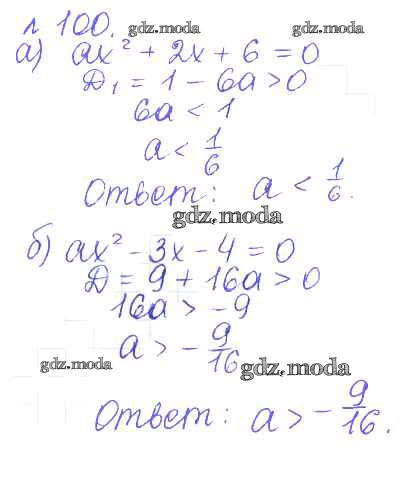 № 100. gdz.moda gdz.moda
а) ax² + 2x + 6 = 0
Д₁ = 1 - 6a > 0
6a < 1
a < 1/6
Ответ: a < 1/6.
gdz.moda
б) ax² - 3x - 4 = 0
Д = 9 + 16a > 0
16a > -9
a > - 9/16
gdz.moda gdz.moda
Ответ: a > - 9/16.